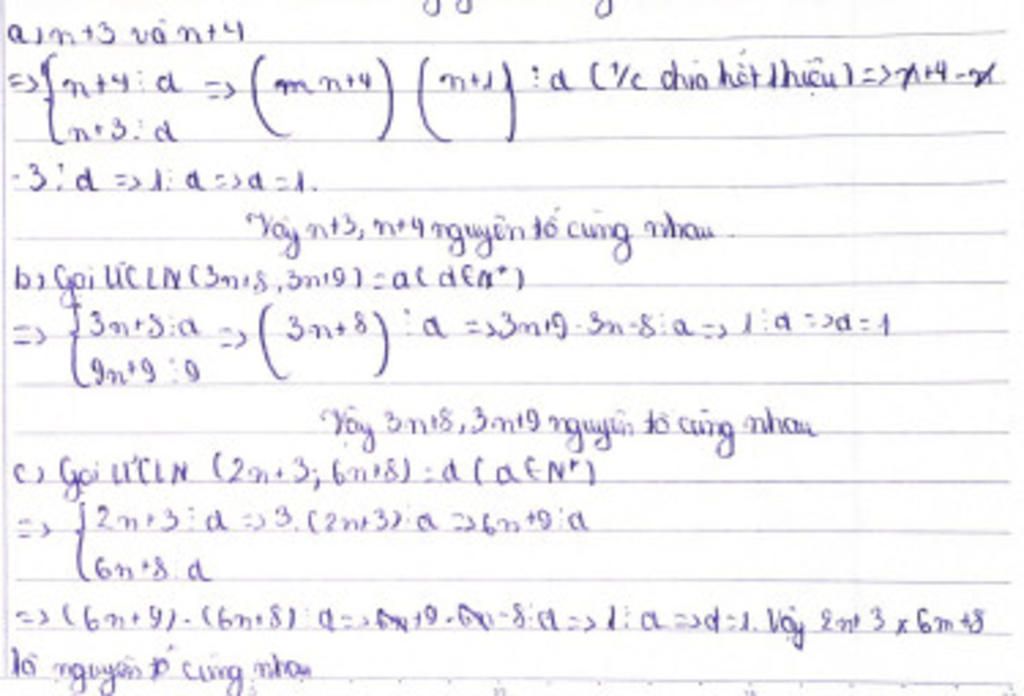 a, n+3 và n+4
=> { n+4 ⋮ d => (m n+4) (n+1) ⋮ d (T/c chia hết 1 hiệu) => n+4 - n
n+3 ⋮ d
-3 ⋮ d => 1 ⋮ d => d = 1.
Vậy n+3, n+4 nguyên tố cùng nhau.
b, Gọi ƯCLN (3n+8, 3n+9) = d (d ∈ N*)
=> { 3n+8 ⋮ d => (3n+8) ⋮ d => 3n+9 - 3n-8 ⋮ d => 1 ⋮ d => d = 1
9n+9 ⋮ 9
Vậy 3n+8, 3n+9 nguyên tố cùng nhau
c, Gọi ƯCLN (2n+3; 6n+8) = d (d ∈ N*)
=> { 2n+3 ⋮ d => 3.(2n+3) ⋮ d => 6n+9 ⋮ d
6n+8 ⋮ d
=> (6n+9) - (6n+8) ⋮ d => 6n+9 - 6n-8 ⋮ d => 1 ⋮ d => d = 1. Vậy 2n+3 x 6m+8
là nguyên tố cùng nhau